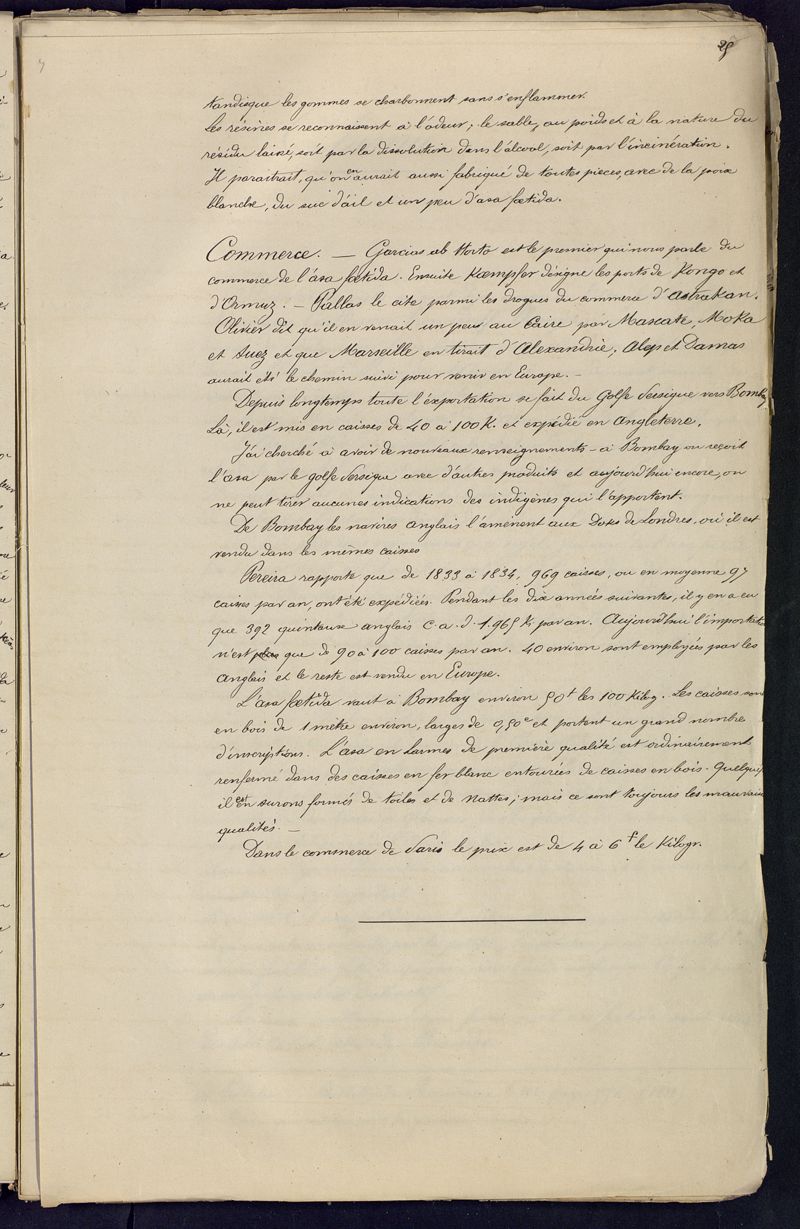 25
tandisque les gommes se charbonnent sans s'enflammer.
Les résines se reconnaissent à l'odeur; le sable, au poids et à la nature du
résidu laissé, soit par la dissolution dans l'alcool, soit par l'incinération.
Il paraitrait, qu'on en aurait aussi fabriqué de toutes pièces, avec de la poix
blanche, du suc d'ail et un peu d'asa fœtida.
Commerce. — Garcias ab Horto est le premier qui nous parle du
commerce de l'asa fœtida. Ensuite Kœmpfer désigne les ports de Kongo et
d'Ormuz. — Pallas le cite parmi les drogues du commerce d'Astrakan.
Olivier dit qu'il en venait un peu au Caire par Mascate, Moka
et Suez et que Marseille en tirait d'Alexandrie. Alep et Damas
aurait été le chemin suivi pour venir en Europe. —
Depuis longtemps toute l'exportation se fait du Golfe Persique vers Bombay
Là, il est mis en caisses de 40 à 100 K. et expédié en Angleterre.
J'ai cherché à avoir de nouveaux renseignements — à Bombay on reçoit
l'asa par le golfe Persique avec d'autres produits et aujourd'hui encore, on
ne peut tirer aucunes indications des indigènes qui l'apportent.
De Bombay les navires anglais l'amènent aux Docks de Londres, où il est
vendu dans les mêmes caisses
Pereira rapporte que de 1833 à 1834, 969 caisses, ou en moyenne 97
caisses par an, ont été expédiées. Pendant les dix années suivantes, il y en a eu
que 392 quintaux anglais c.a.d. 1.965 K. par an. Aujourd'hui l'importation
n'est plus que de 90 à 100 caisses par an. 40 environ sont employées par les
anglais et le reste est vendu en Europe.
L'asa fœtida vaut à Bombay environ 50f les 100 Kilog. Les caisses sont
en bois de 1 mètre environ, larges de 0,50c et portent un grand nombre
d'inscriptions. L'asa en larmes de première qualité est ordinairement
renfermé dans des caisses en fer blanc entourées de caisses en bois. Quelquefois
il est en surons formés de toiles et de nattes; mais ce sont toujours les mauvaises
qualités. —
Dans le commerce de Paris le prix est de 4 à 6f le Kilogr.